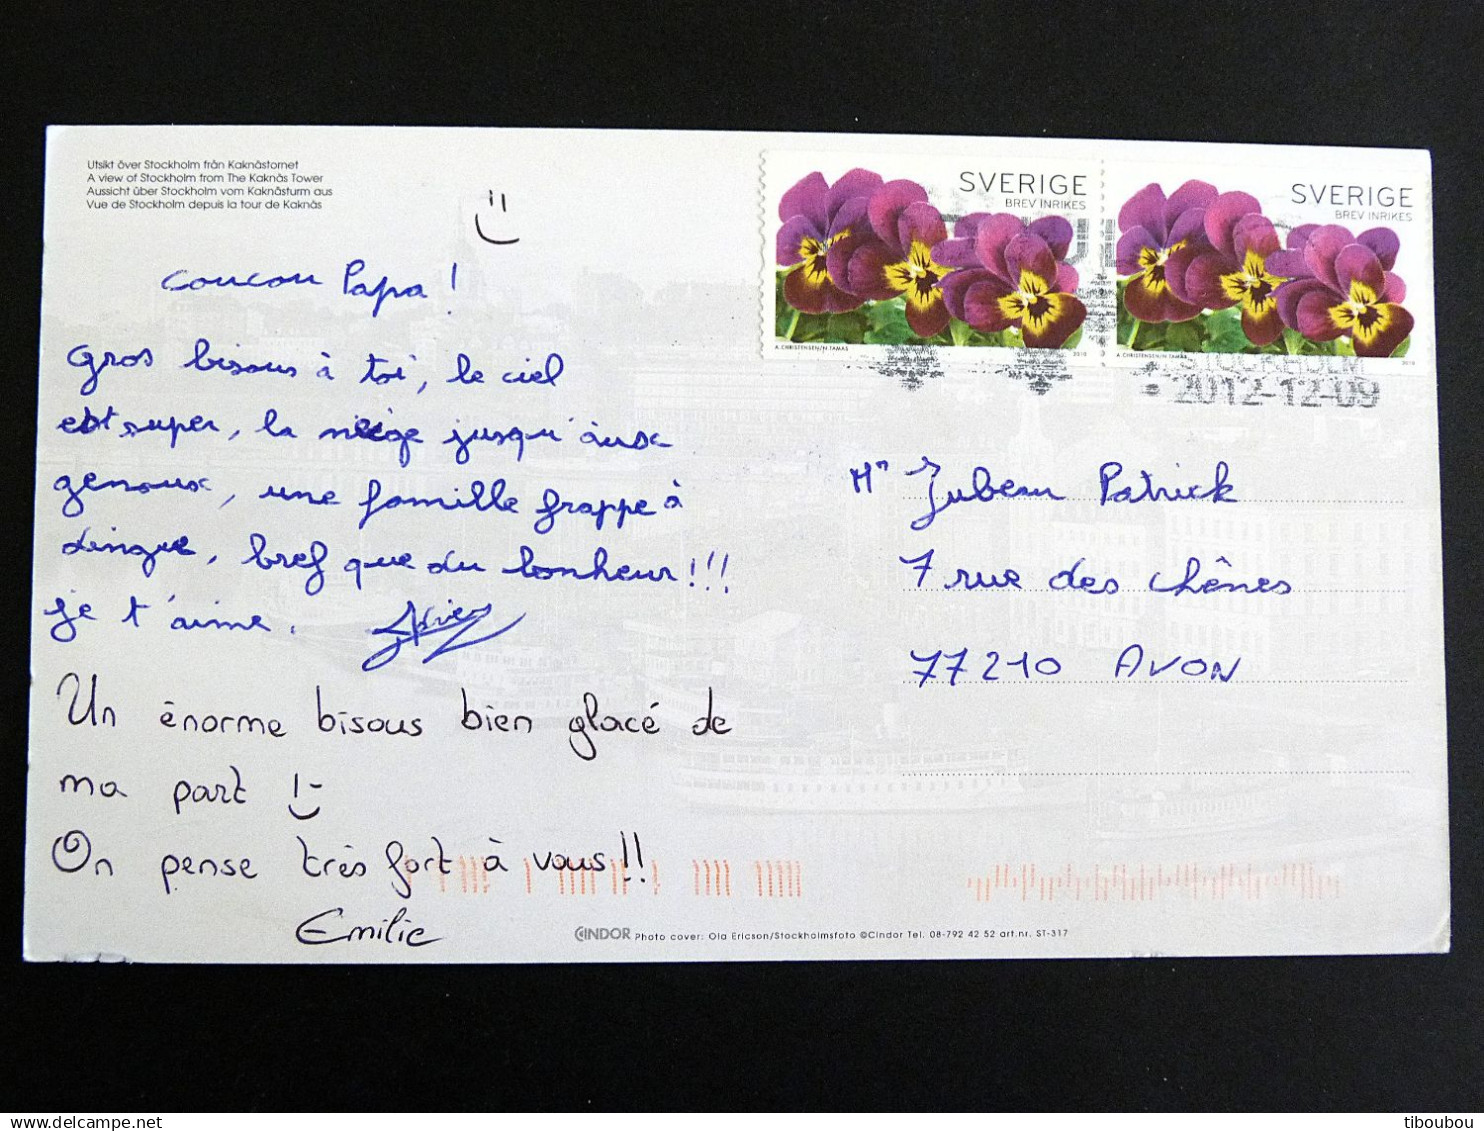 Utsikt över Stockholm från Kaknästornet
A view of Stockholm from The Kaknäs Tower
Aussicht über Stockholm vom Kaknästurm aus
Vue de Stockholm depuis la tour de Kaknäs
SVERIGE
BREV INRIKES
A. CHRISTENSEN/N. TAMAS
2010
SVERIGE
BREV INRIKES
A. CHRISTENSEN/N. TAMAS
2010
STOCKHOLM
2012-12-09
Coucou Papa !
Gros bisous à toi, le ciel
est super, la neige jusqu'aux
genoux, une famille frappé à
dingue, bref que du bonheur !!!
Je t'aime.
Un énorme bisous bien glacé de
ma part !
On pense très fort à vous !!
Emilie
Mr Jubeau Patrick
7 rue des chênes
77210 AVON
CINDOR Photo cover: Ola Ericson/Stockholmsfoto ©Cindor Tel. 08-792 42 52 art.nr. ST-317
tiboubou